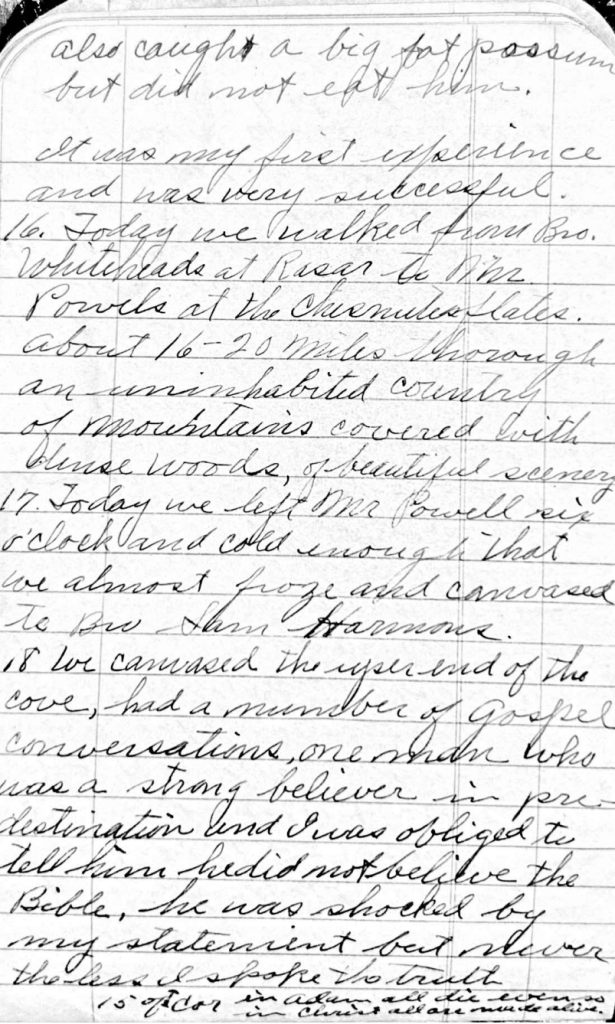 also caught a big fat possum
but did not eat him.
It was my first experience
and was very successful.
16. Today we walked from Bro.
Whiteheads at Rasar to Mr.
Powels at the Chesnutes flates.
About 16-20 miles thorough
an uninhabited country
of mountains covered with
dense woods, of beautiful scenery
17. Today we left Mr Powell six
o'clock and cold enough that
we almost froze and canvased
to Bro Sam Harmons.
18 We canvased the uper end of the
cove, had a number of Gospel
conversations, one man who
was a strong believer in pre-
destination and I was obliged to
tell him he did not believe the
Bible, he was shocked by
my statement but never
the less I spoke the truth
15 of Cor in adam all die even so
in Christ all are made alive.